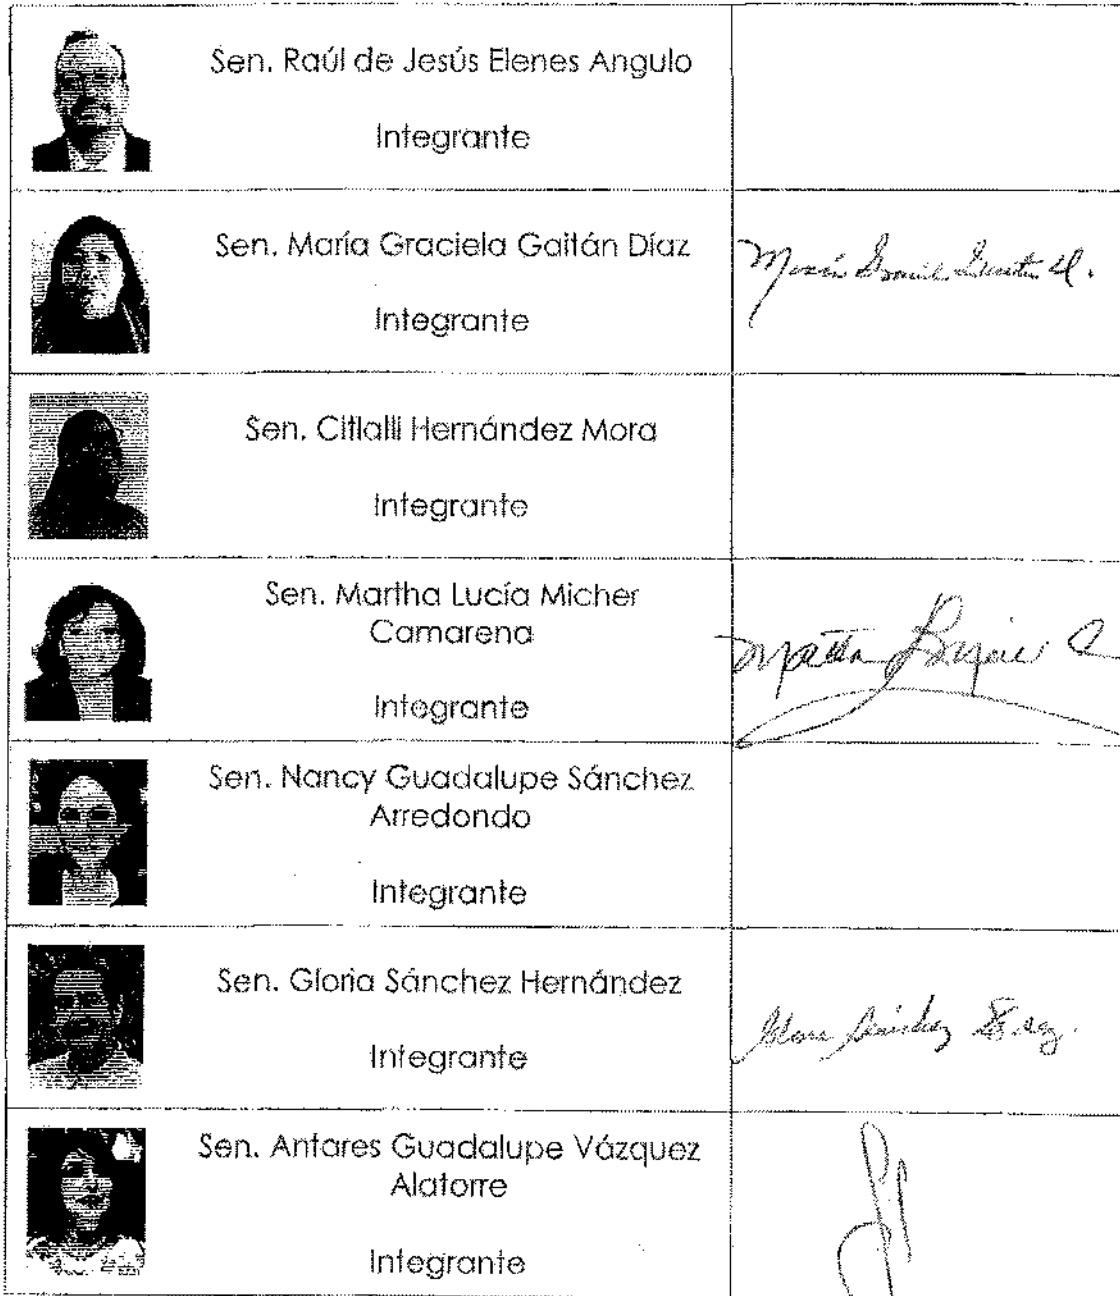 Sen. Raúl de Jesús Elenes Angulo
Integrante
Sen. María Graciela Gaitán Díaz
Integrante
Sen. Citlalli Hernández Mora
Integrante
Sen. Martha Lucía Micher
Camarena
Integrante
Martha
Sen. Nancy Guadalupe Sánchez
Arredondo
Integrante
Sen. Gloria Sánchez Hernández
Integrante
Sánchez
Sen. Antares Guadalupe Vázquez
Alatorre
Integrante